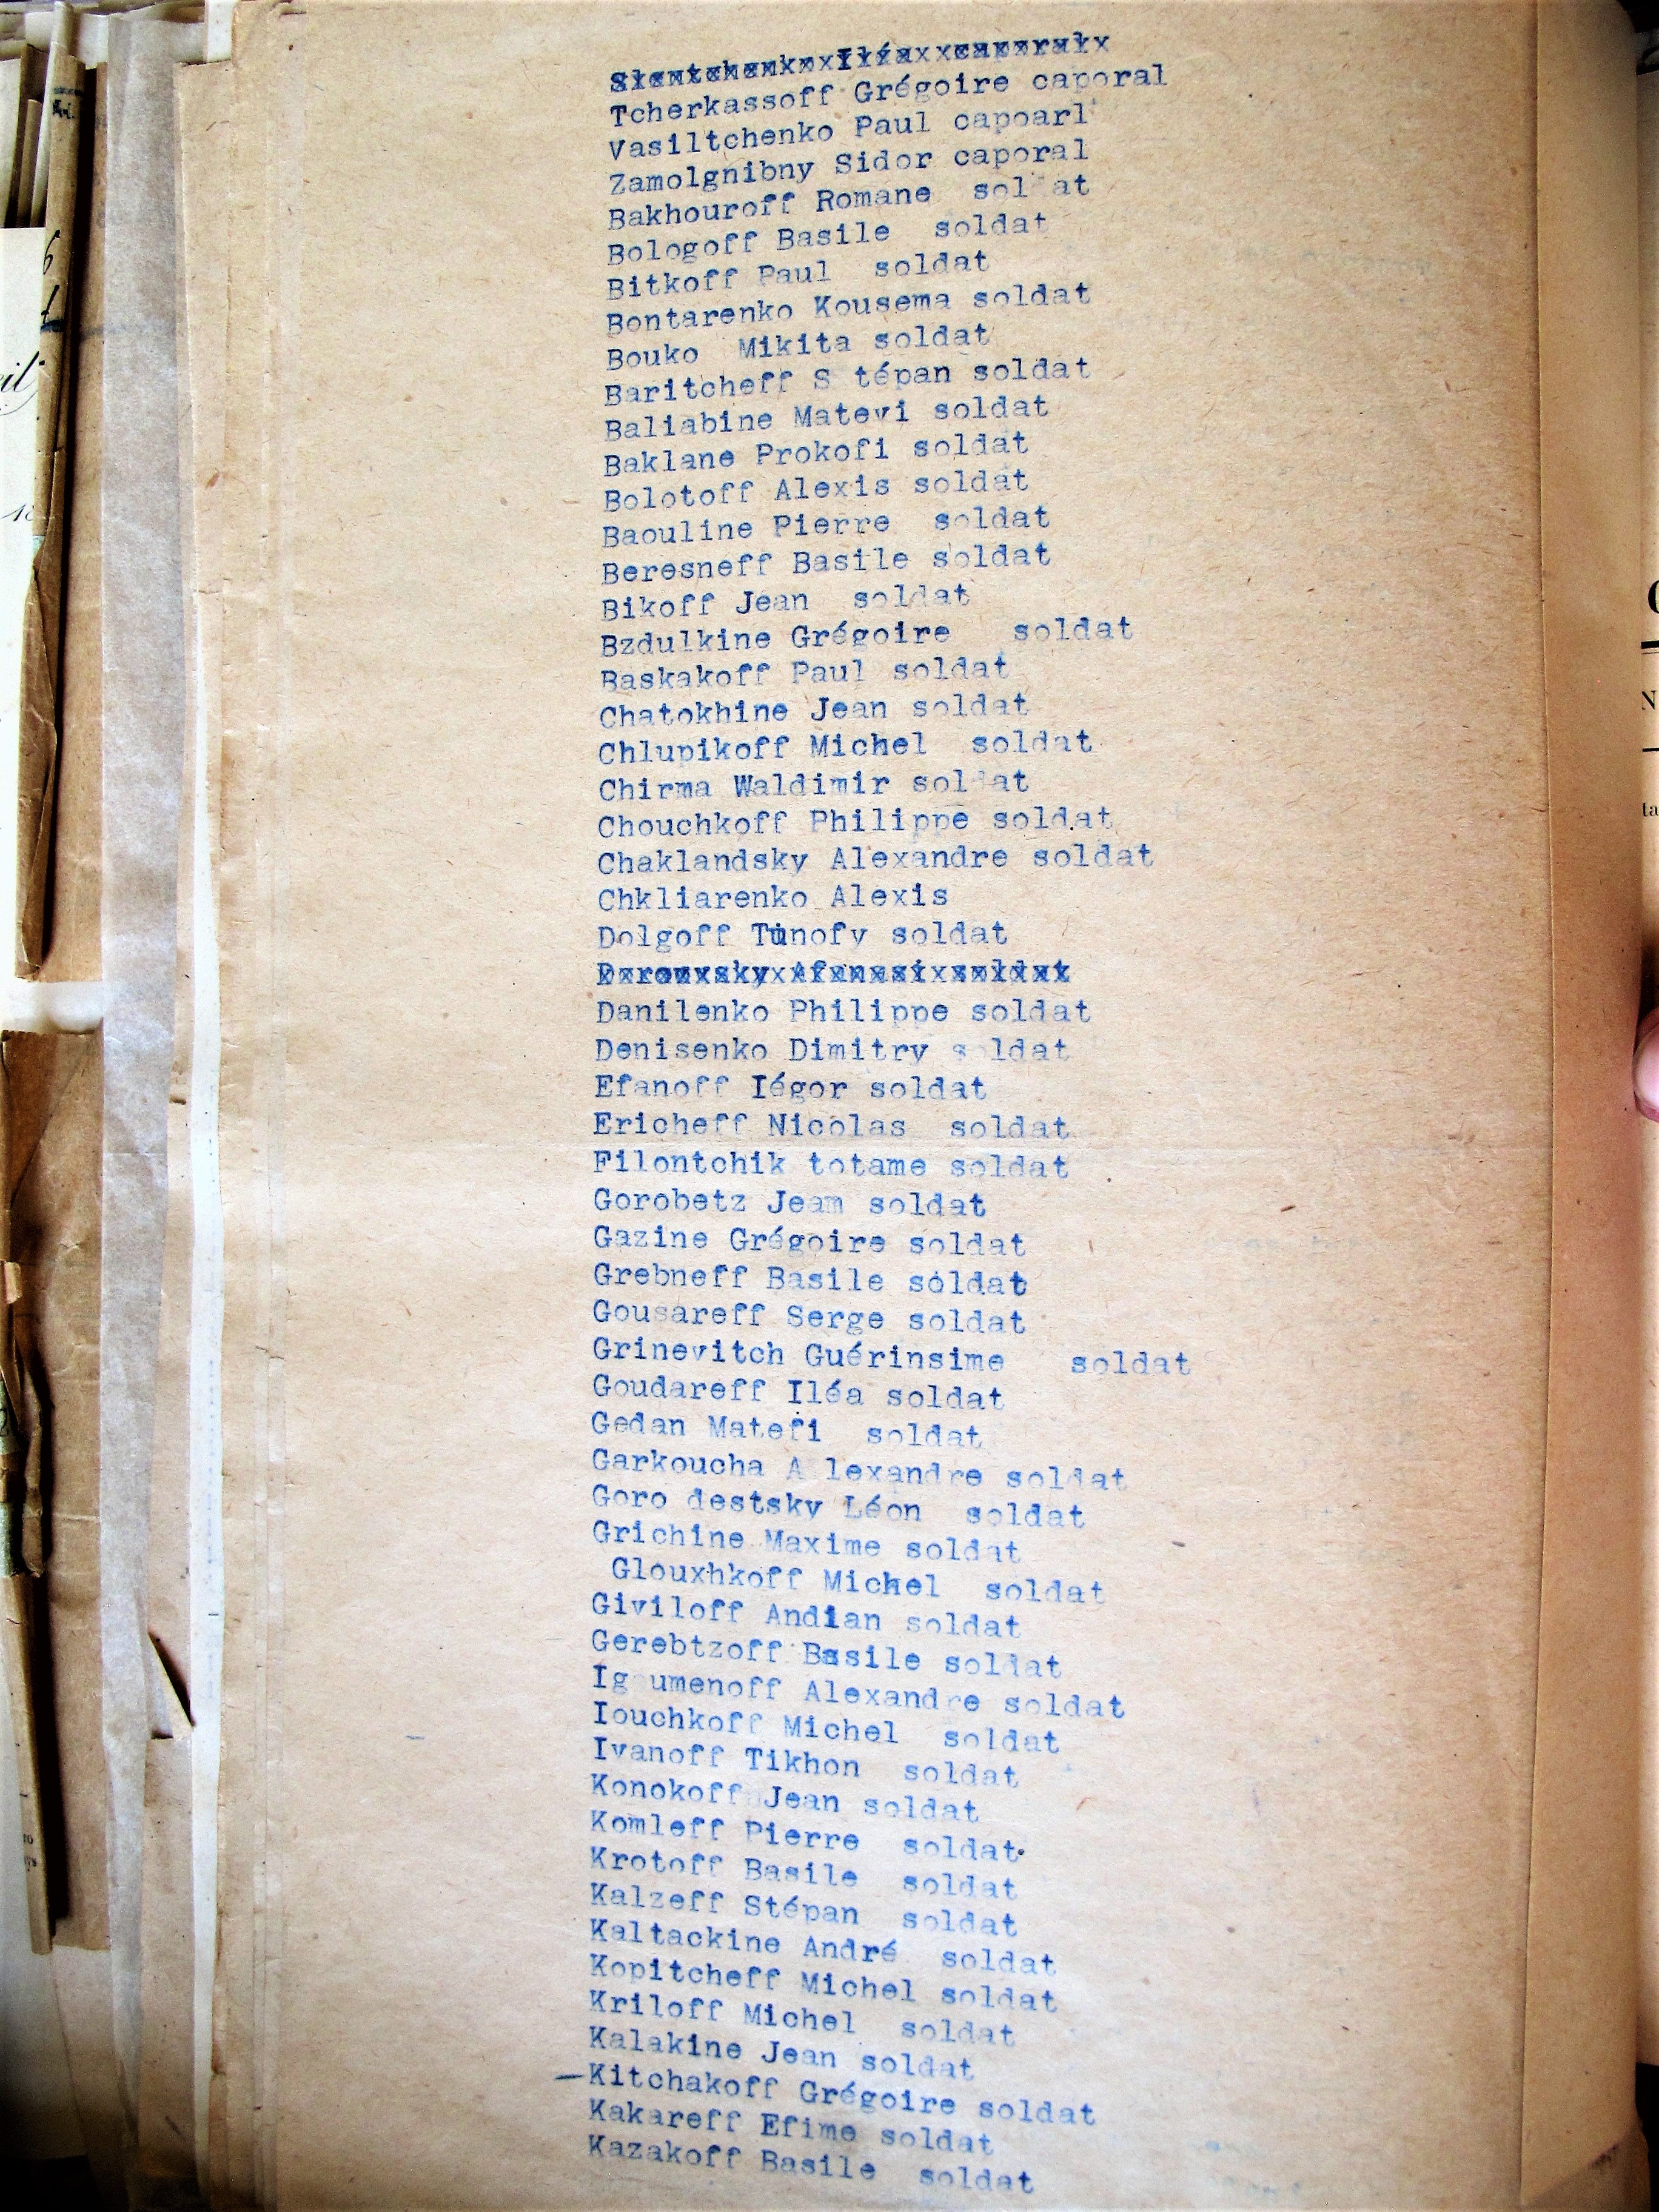 Tcherkassoff Grégoire caporal
Vasiltchenko Paul capoarl
Zamolgnibny Sidor caporal
Bakhouroff Romane sol at
Bologoff Basile soldat
Bitkoff Paul soldat
Bontarenko Kousema soldat
Bouko Mikita soldat
Baritcheff S tépan soldat
Baliabine Matevi soldat
Baklane Prokofi soldat
Bolotoff Alexis soldat
Baouline Pierre soldat
Beresneff Basile soldat
Bikoff Jean soldat
Bzdulkine Grégoire soldat
Baskakoff Paul soldat
Chatokhine Jean soldat
Chlupikoff Michel soldat
Chirma Waldimir soldat
Chouchkoff Philippe soldat
Chaklandsky Alexandre soldat
Chkliarenko Alexis
Dolgoff soldat
Danilenko Philippe soldat
Denisenko Dimitry s ldat
Efanoff Iégor soldat
Ericheff Nicolas soldat
Filontchik totame soldat
Gorobetz Jeam soldat
Gazine Grégoire soldat
Grebneff Basile soldat
Gousareff Serge soldat
Grinevitch Guérinsime soldat
Goudareff Iléa soldat
Gedan Matefi soldat
Garkoucha A lexandre soldat
Goro destsky Léon soldat
Grichine Maxime soldat
Glouxhkoff Michel soldat
Giviloff Andian soldat
Gerebtzoff Basile soldat
Ig umenoff Alexandre soldat
Iouchkoff Michel soldat
Ivanoff Tikhon soldat
Konokoff Jean soldat
Komleff Pierre soldat
Krotoff Basile soldat
Kalzeff Stépan soldat
Kaltackine André soldat
Kopitcheff Michel soldat
Kriloff Michel soldat
Kalakine Jean soldat
—Kitchakoff Grégoire soldat
Kakareff Efime soldat
Kazakoff Basile soldat